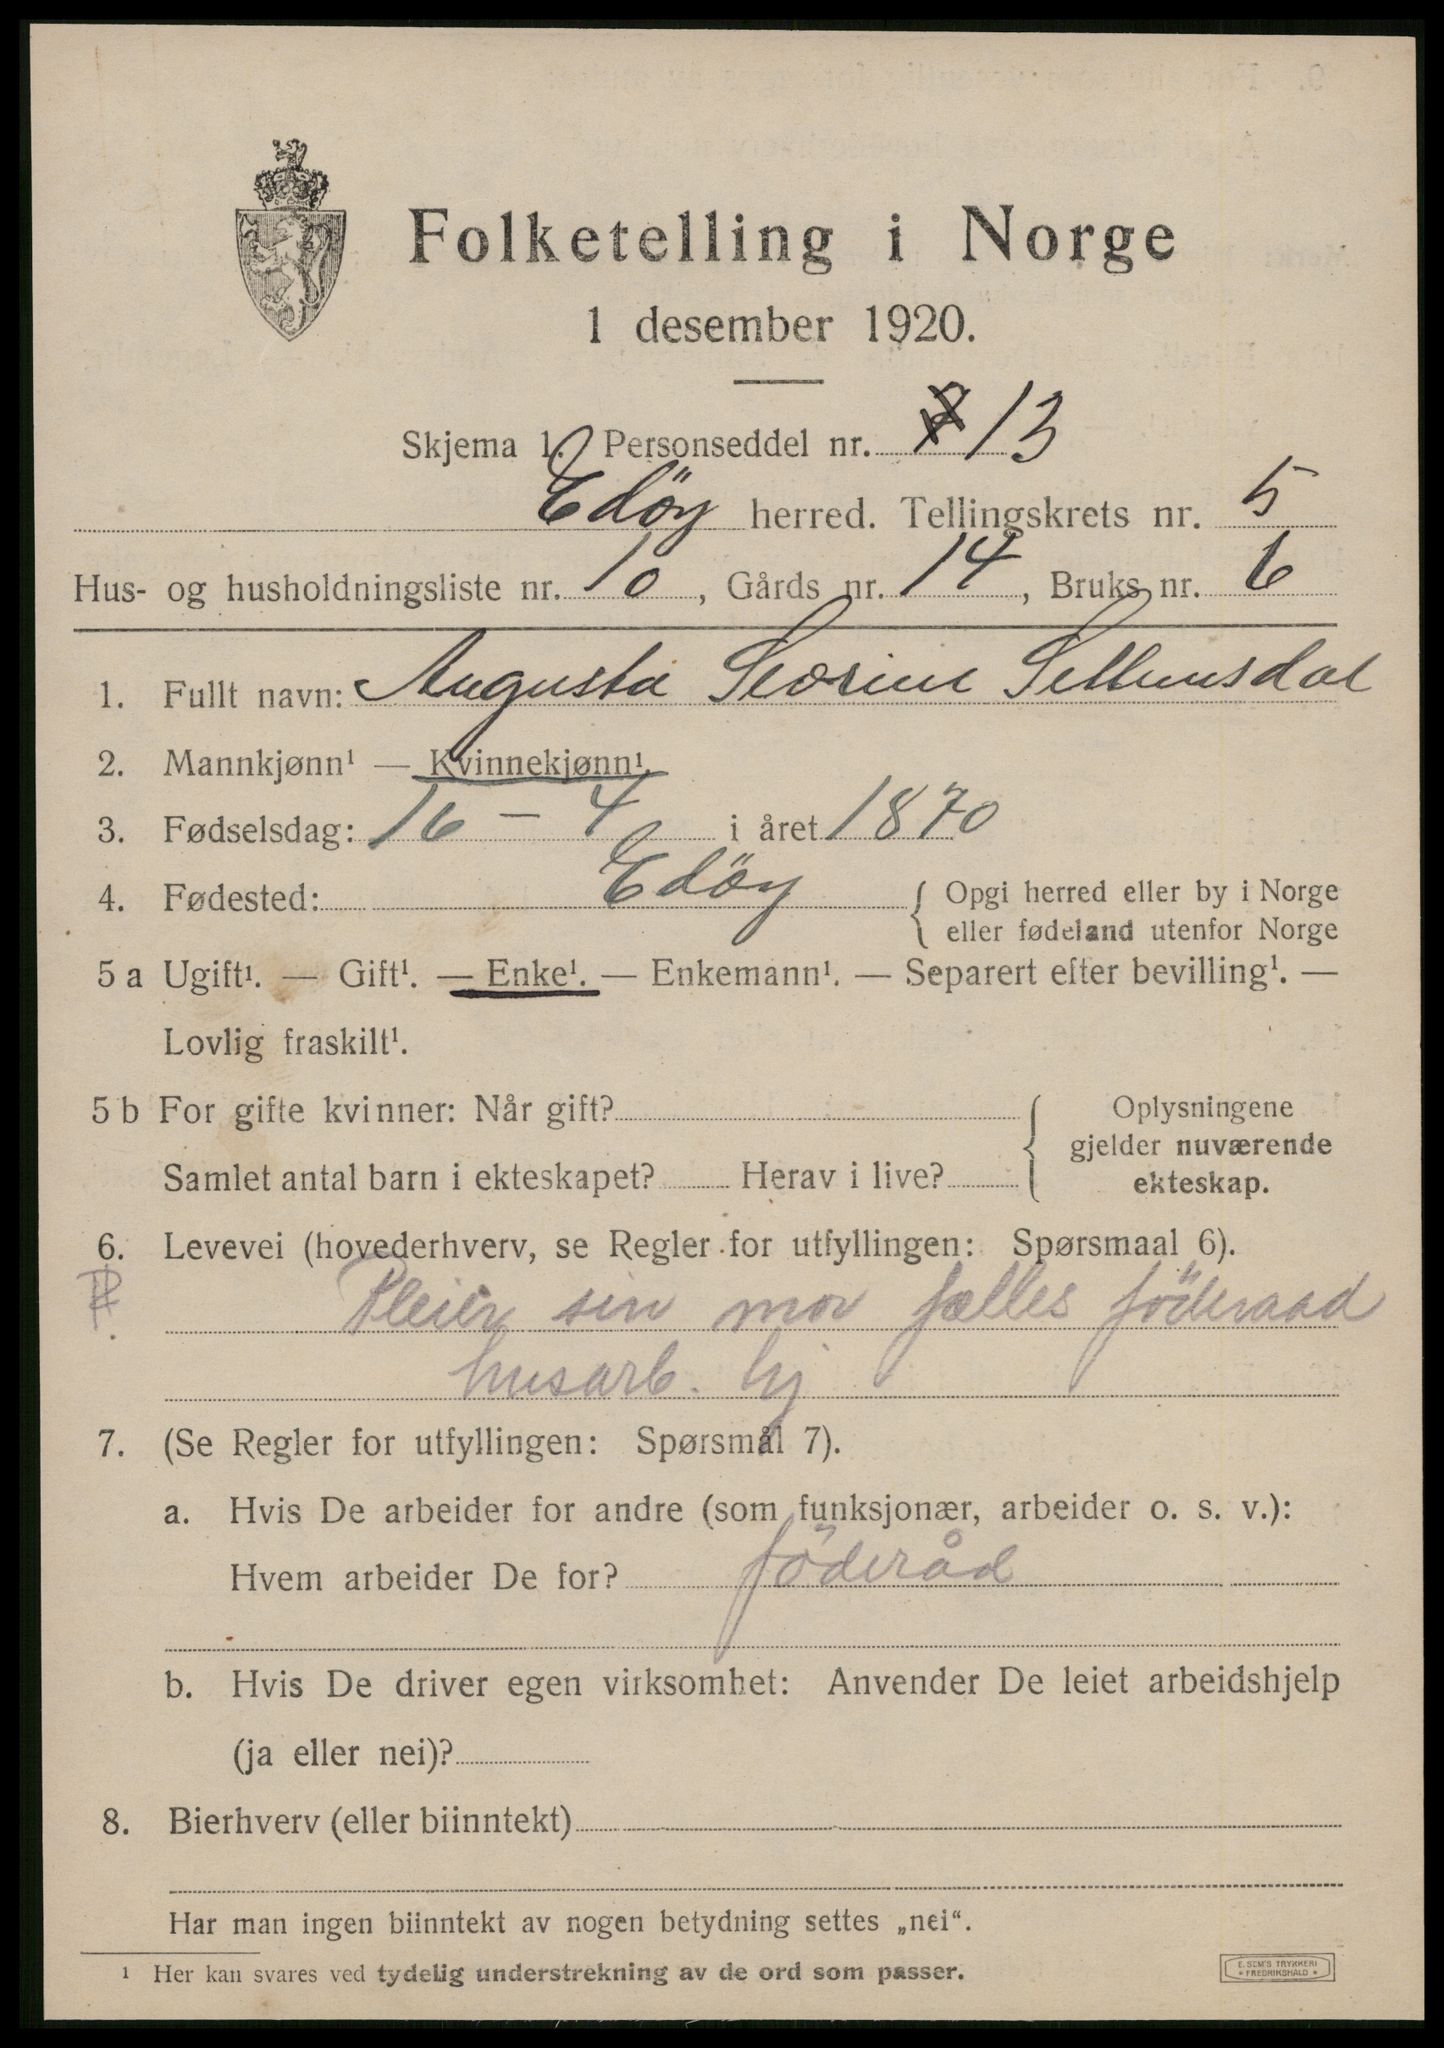 Folketelling i Norge
1 desember 1920.
Skjema 1. Personseddel nr. 13
Edöy herred. Tellingskrets nr. 5
Hus- og husholdningsliste nr. 10, Gårds nr. 14, Bruks nr. 6
1. Fullt navn: Augusta
2. Mannkjønn¹ — Kvinnekjønn¹.
3. Fødselsdag: 16 - 4 i året 1870
4. Fødested: Edöy { Opgi herred eller by i Norge
eller fødeland utenfor Norge
5 a Ugift¹. — Gift¹. — Enke¹. — Enkemann¹. — Separert efter bevilling¹. —
Lovlig fraskilt¹.
5 b For gifte kvinner: Når gift? { Oplysningene
gjelder nuværende
Samlet antal barn i ekteskapet? Herav i live?
ekteskap.
6. Levevei (hovederhverv, se Regler for utfyllingen: Spørsmaal 6).
Pleier sin mor fælles föderaad
husarb. hj
7. (Se Regler for utfyllingen: Spørsmål 7).
a. Hvis De arbeider for andre (som funksjonær, arbeider o. s. v.):
Hvem arbeider De for? föderåd
b. Hvis De driver egen virksomhet: Anvender De leiet arbeidshjelp
(ja eller nei)?
8. Bierhverv (eller biinntekt)
Har man ingen biinntekt av nogen betydning settes „nei“.
¹ Her kan svares ved tydelig understrekning av de ord som passer.
E. SEM'S TRYKKERI
* FREDRIKSHALD *